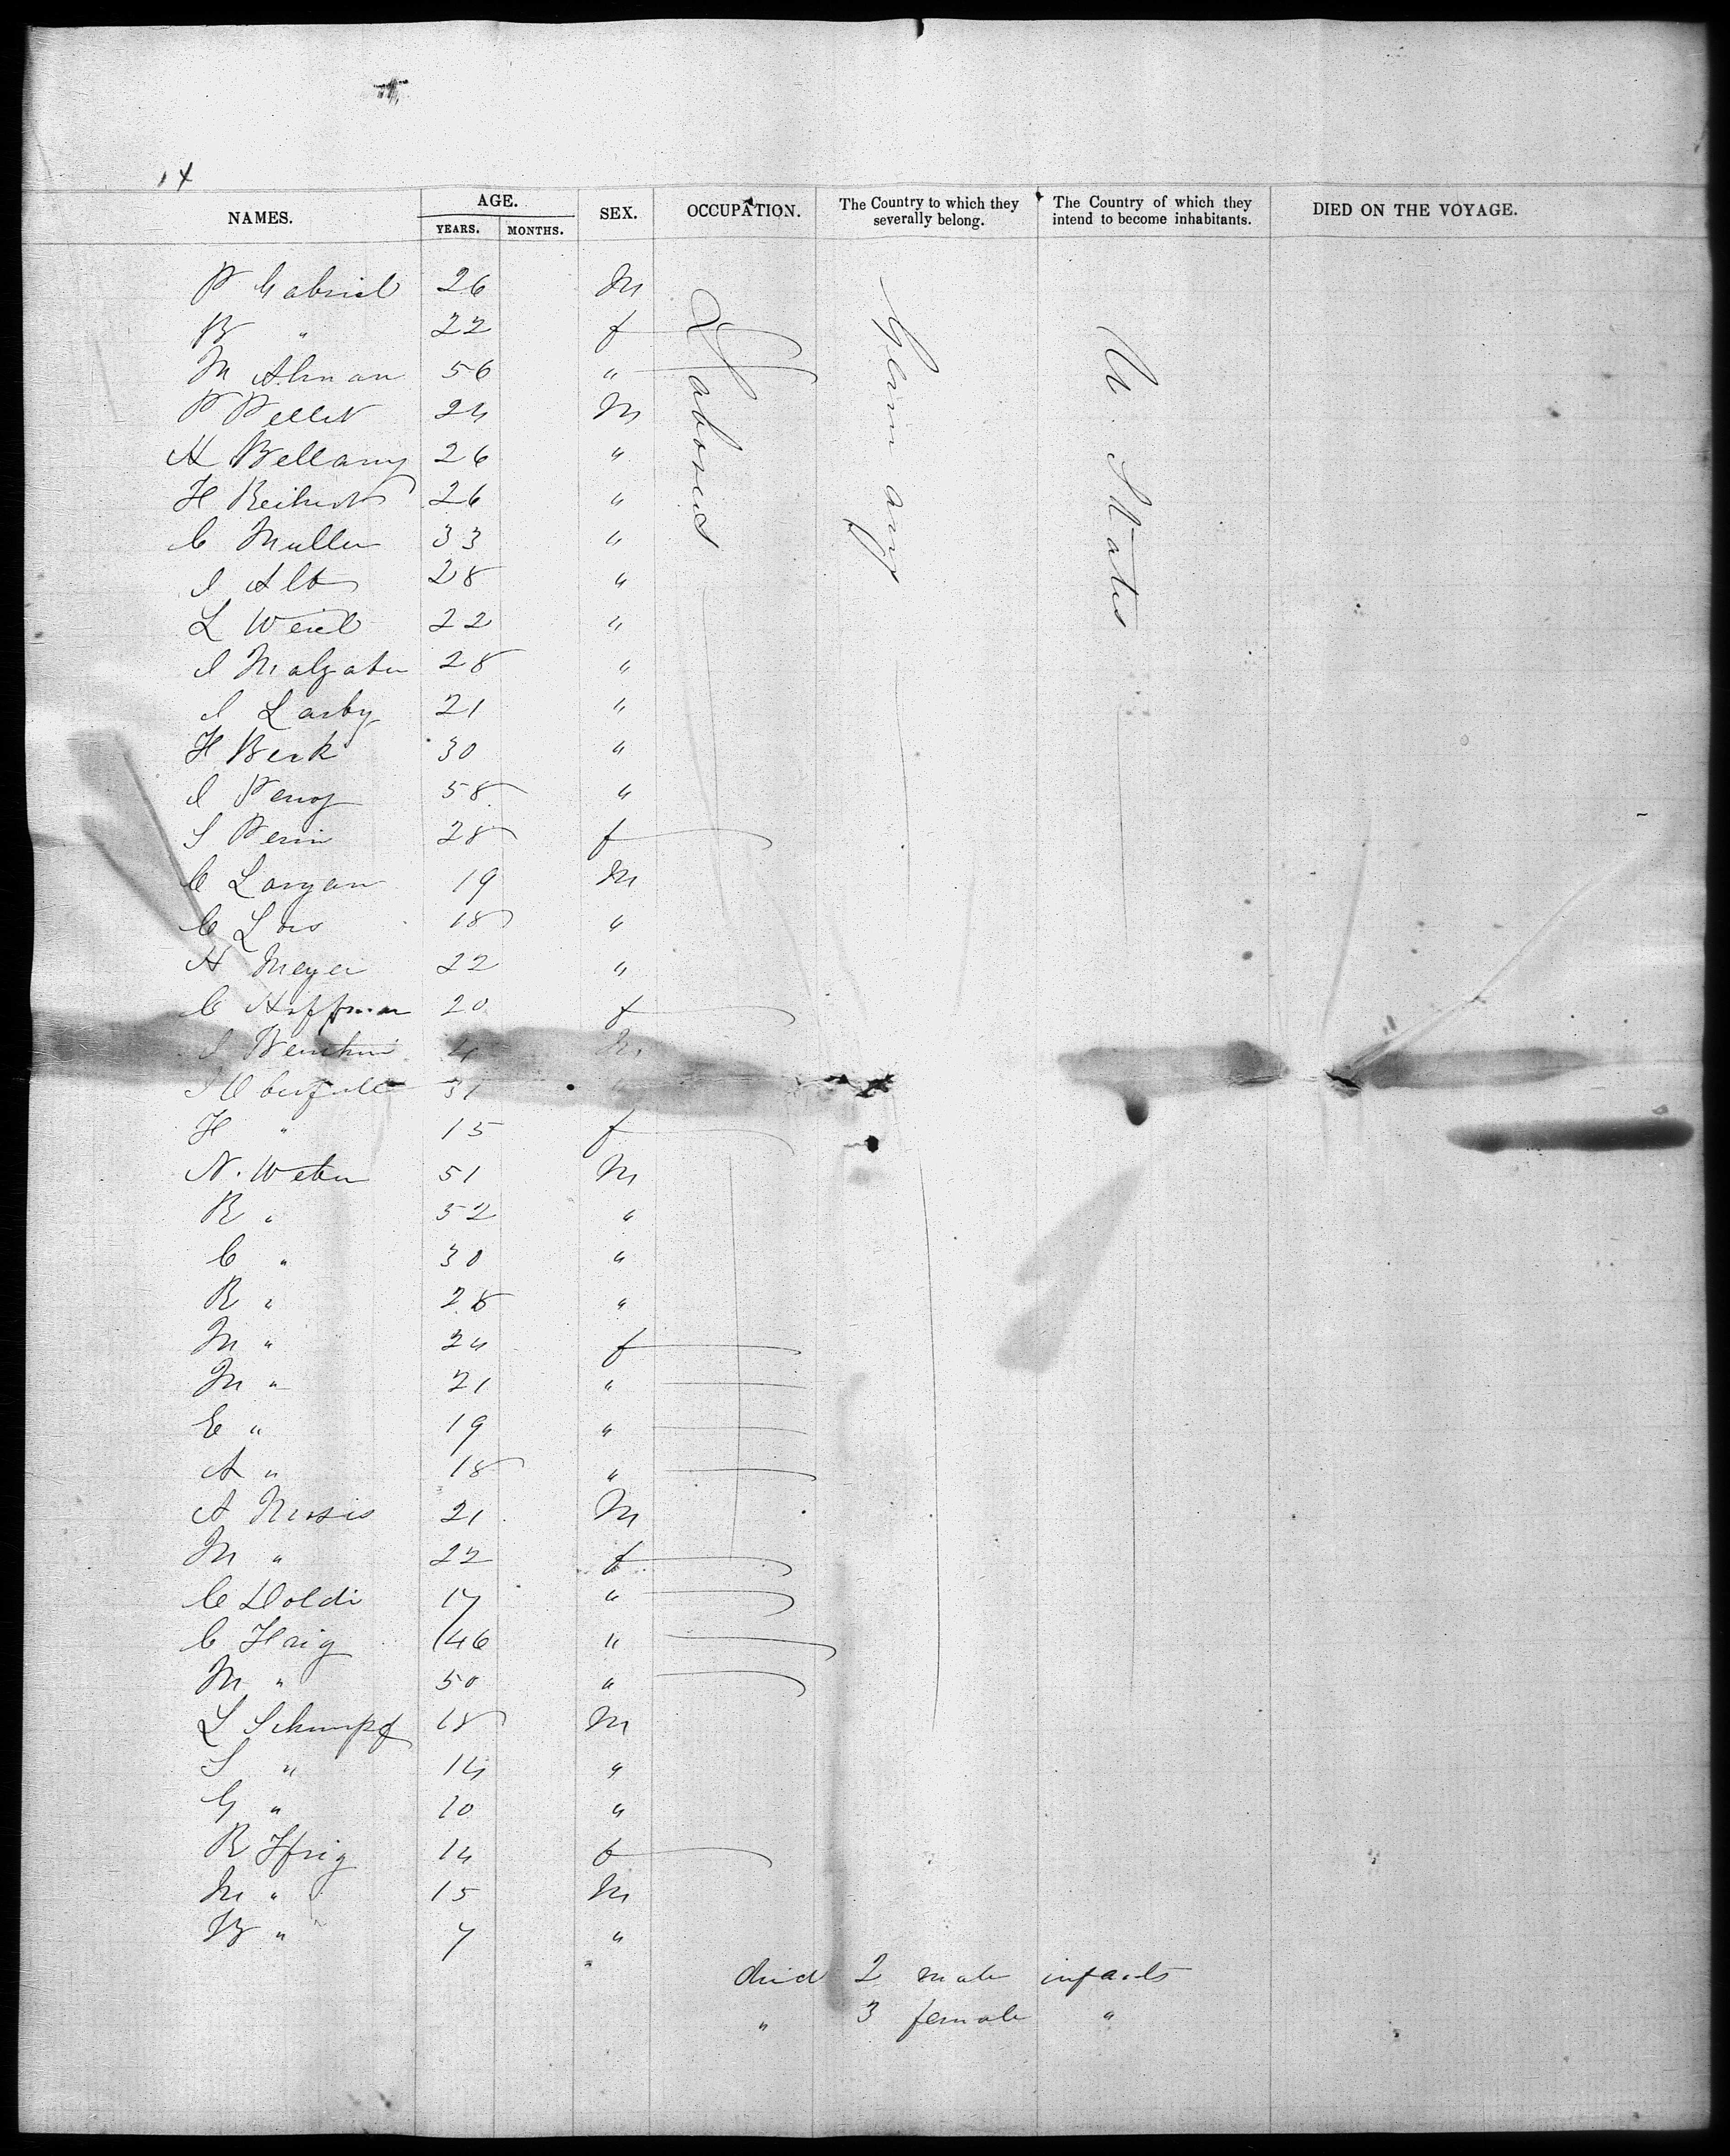 14
NAMES. AGE. YEARS. MONTHS. SEX. OCCUPATION. The Country to which they severally belong. The Country of which they intend to become inhabitants. DIED ON THE VOYAGE.
P Gabriel 26 M
B " 22 f
M Alman 56 "
P Pellet 24 M
H Bellamy 26 "
H 26 "
C Muller 33 "
I Alt 28 "
L Weil 22 "
I 28 "
I Larby 21 "
H Berk 30 "
I 58 "
S Perin 28 f
C Langan 19 M
C 18 "
H Meyer 22 "
C Hoffman 20 f
I 4 M
I 31 "
H " 15 f
N. Weber 51 M
R " 52 "
C " 30 "
R " 28 "
M " 24 f
M " 21 "
E " 19 "
A " 18 "
A 21 M
M " 22 f
C Doldi 17 "
C 46 "
M " 50 "
L Schimpf 18 M
S " 14 "
G " 10 "
R Ifrig 14 f
M " 15 M
B " 7 "
Laborers
Germany
U. States
died 2 male infants
" 3 female "